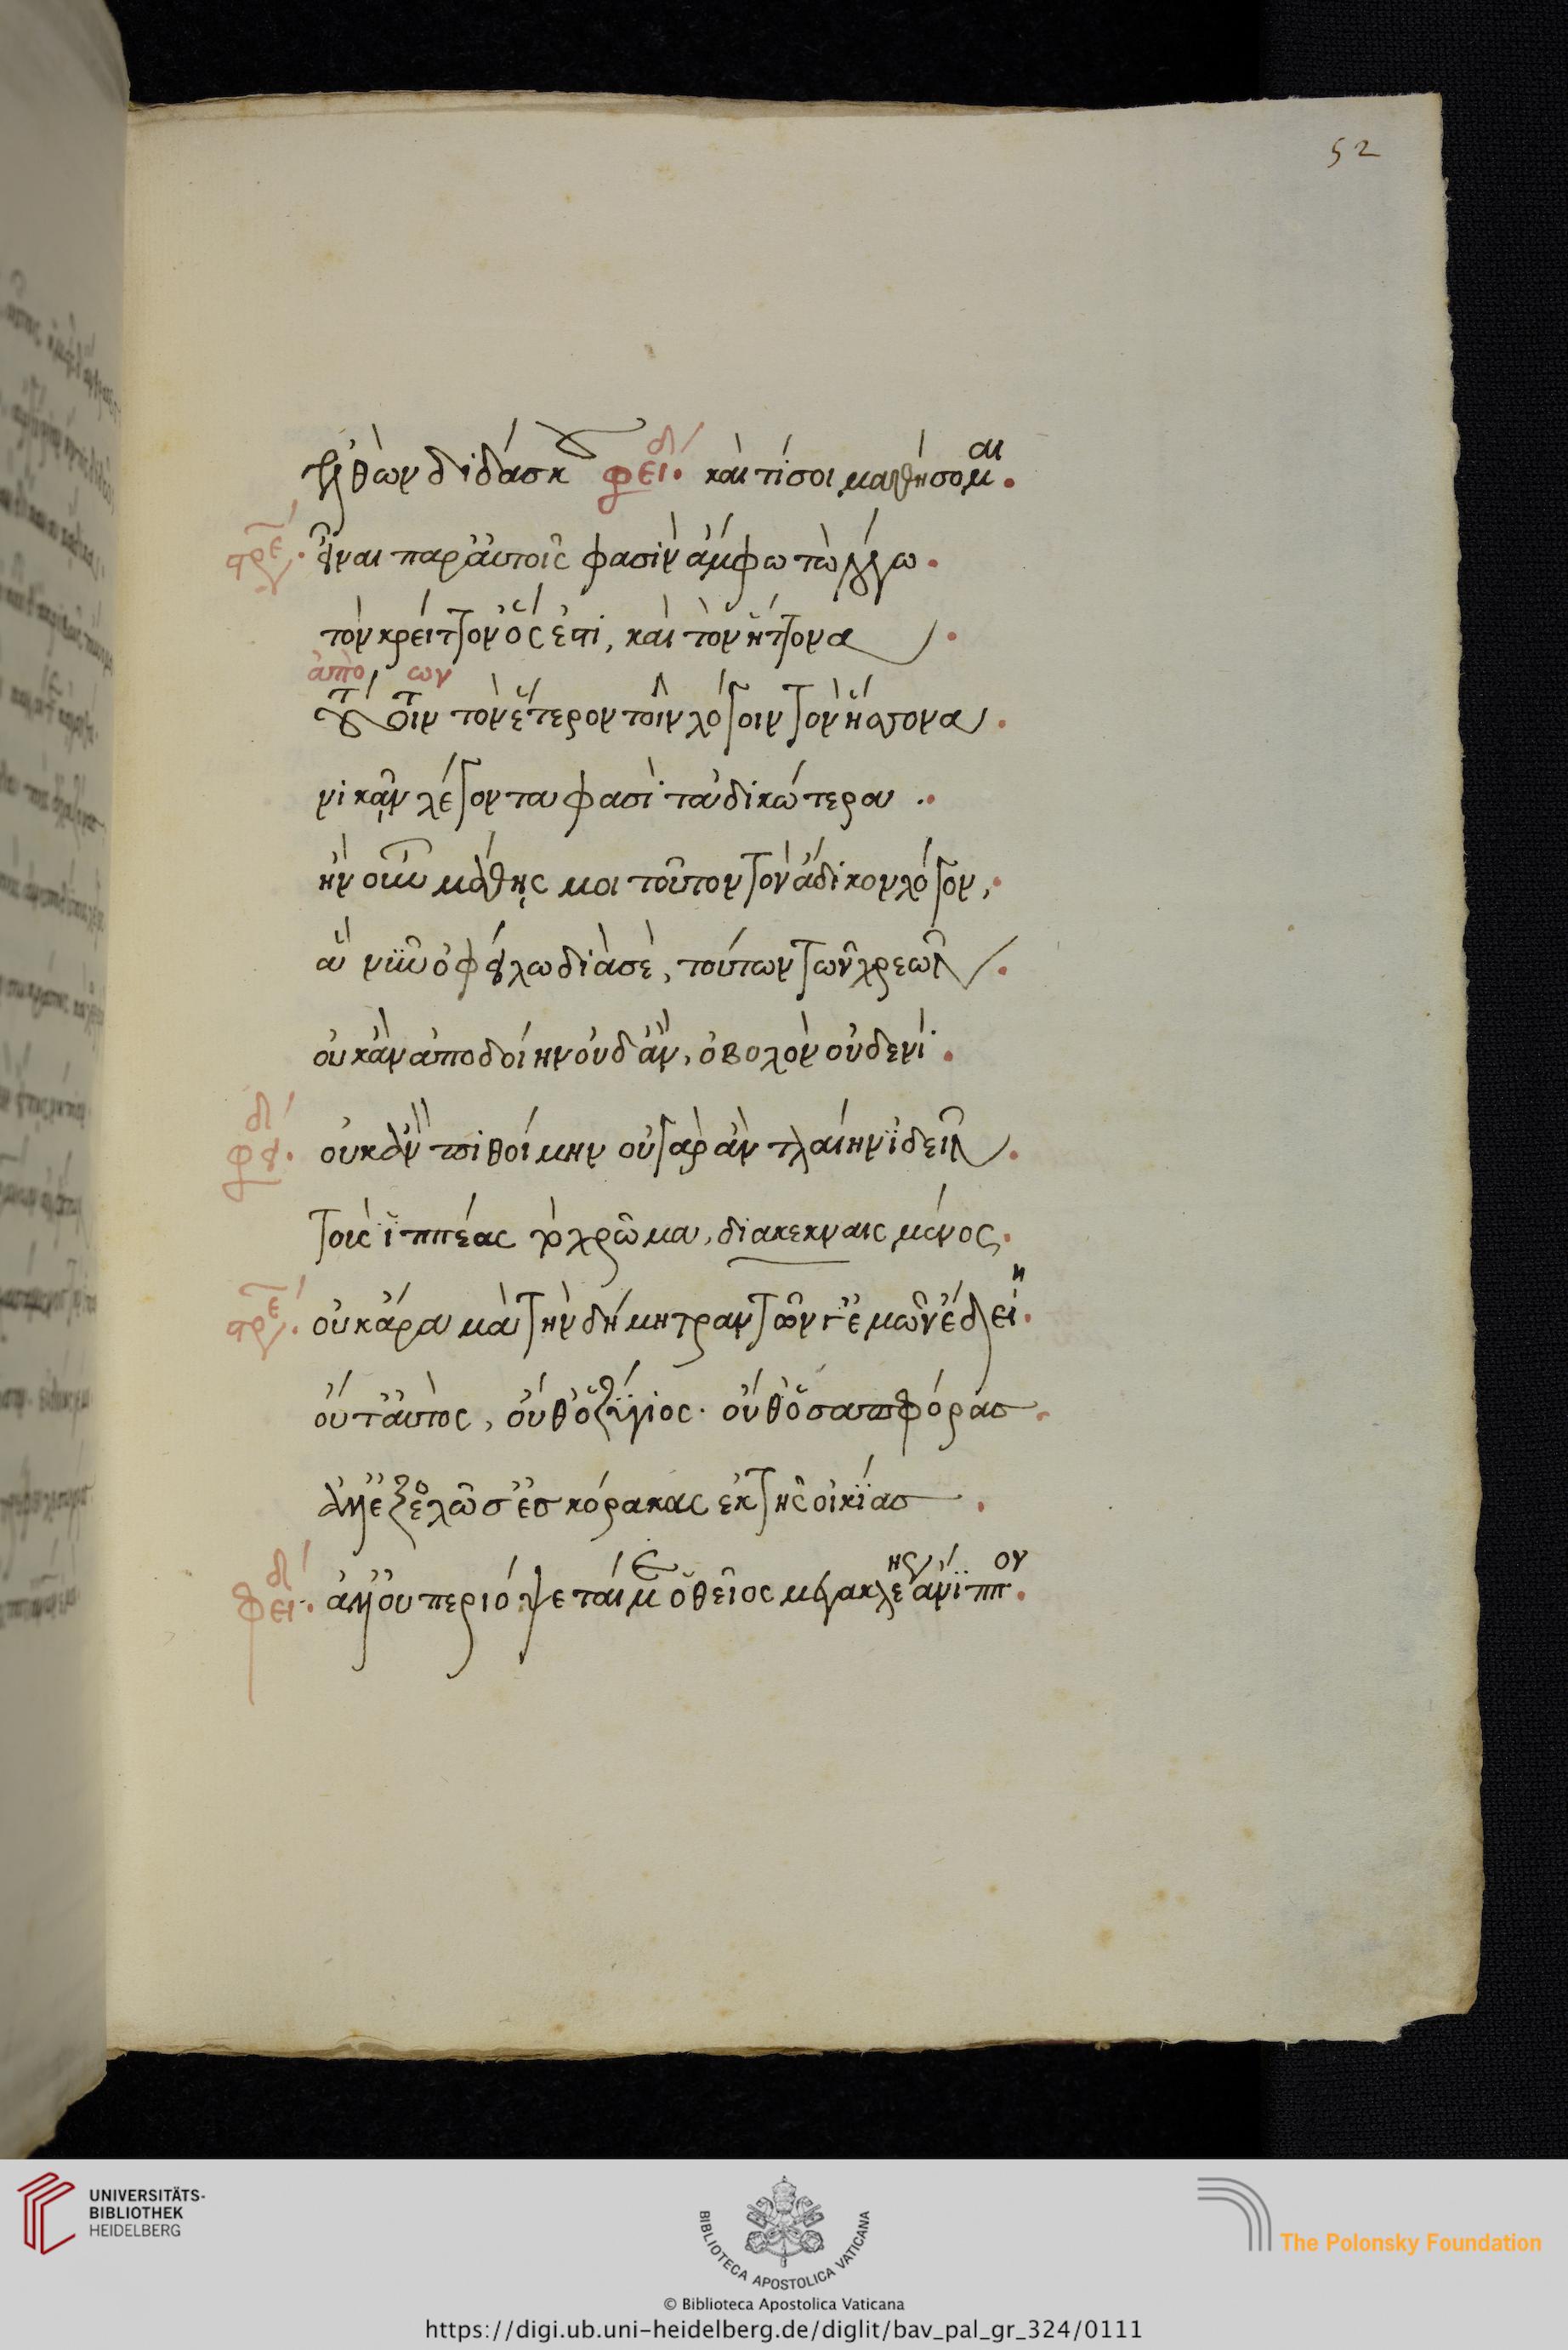 52
ἐλθὼν διδάσκου φει δί. καὶ τί σοι μαθήσομαι.
στρε ψ. εἶναι παρ' αὐτοῖς φασὶν ἄμφω τὼ λόγω.
τὸν κρείττον' ὅς ἐστι, καὶ τὸν ἥττονα.
ἀπὸ ων
τούτοιν τὸν ἕτερον τοῖν λόγοιν τὸν ἥττονα.
νικᾶν λέγοντα φασὶ τἀδικώτερα.
ἢν οὖν μάθῃς μοι τοῦτον τὸν ἄδικον λόγον,
ἃ νῦν ὀφείλω διὰ σὲ, τούτων τῶν χρεῶν.
οὐκ ἂν ἀποδοίην οὐδ' ἂν, ὀβολὸν οὐδενί.
φει δί. οὐκ ἂν πιθοίμην οὐ γὰρ ἂν τλαίην ἰδεῖν.
τοὺς ἱππέας τὸ χρῶμα, διακεκναισμένος.
στρε ψ. οὐκ ἄρα μὰ τὴν δήμητραν τῶν γ' ἐμῶν ἔδει η.
οὔτ' αὐτὸς, οὔθ' ὁ ζύγιος. οὔθ' ὁ σαπφόρας.
ἀλλ' ἐξελῶ σ' ἐς κόρακας ἐκ τῆς οἰκίας.
φει δί. ἀλλ' οὐ περιόψεταί μ' ὁ θεῖος μεγακλέης ἄνιππον.
UNIVERSITÄTS-
BIBLIOTHEK
HEIDELBERG
BIBLIOTECA APOSTOLICA VATICANA
© Biblioteca Apostolica Vaticana
The Polonsky Foundation
https://digi.ub.uni-heidelberg.de/diglit/bav_pal_gr_324/0111